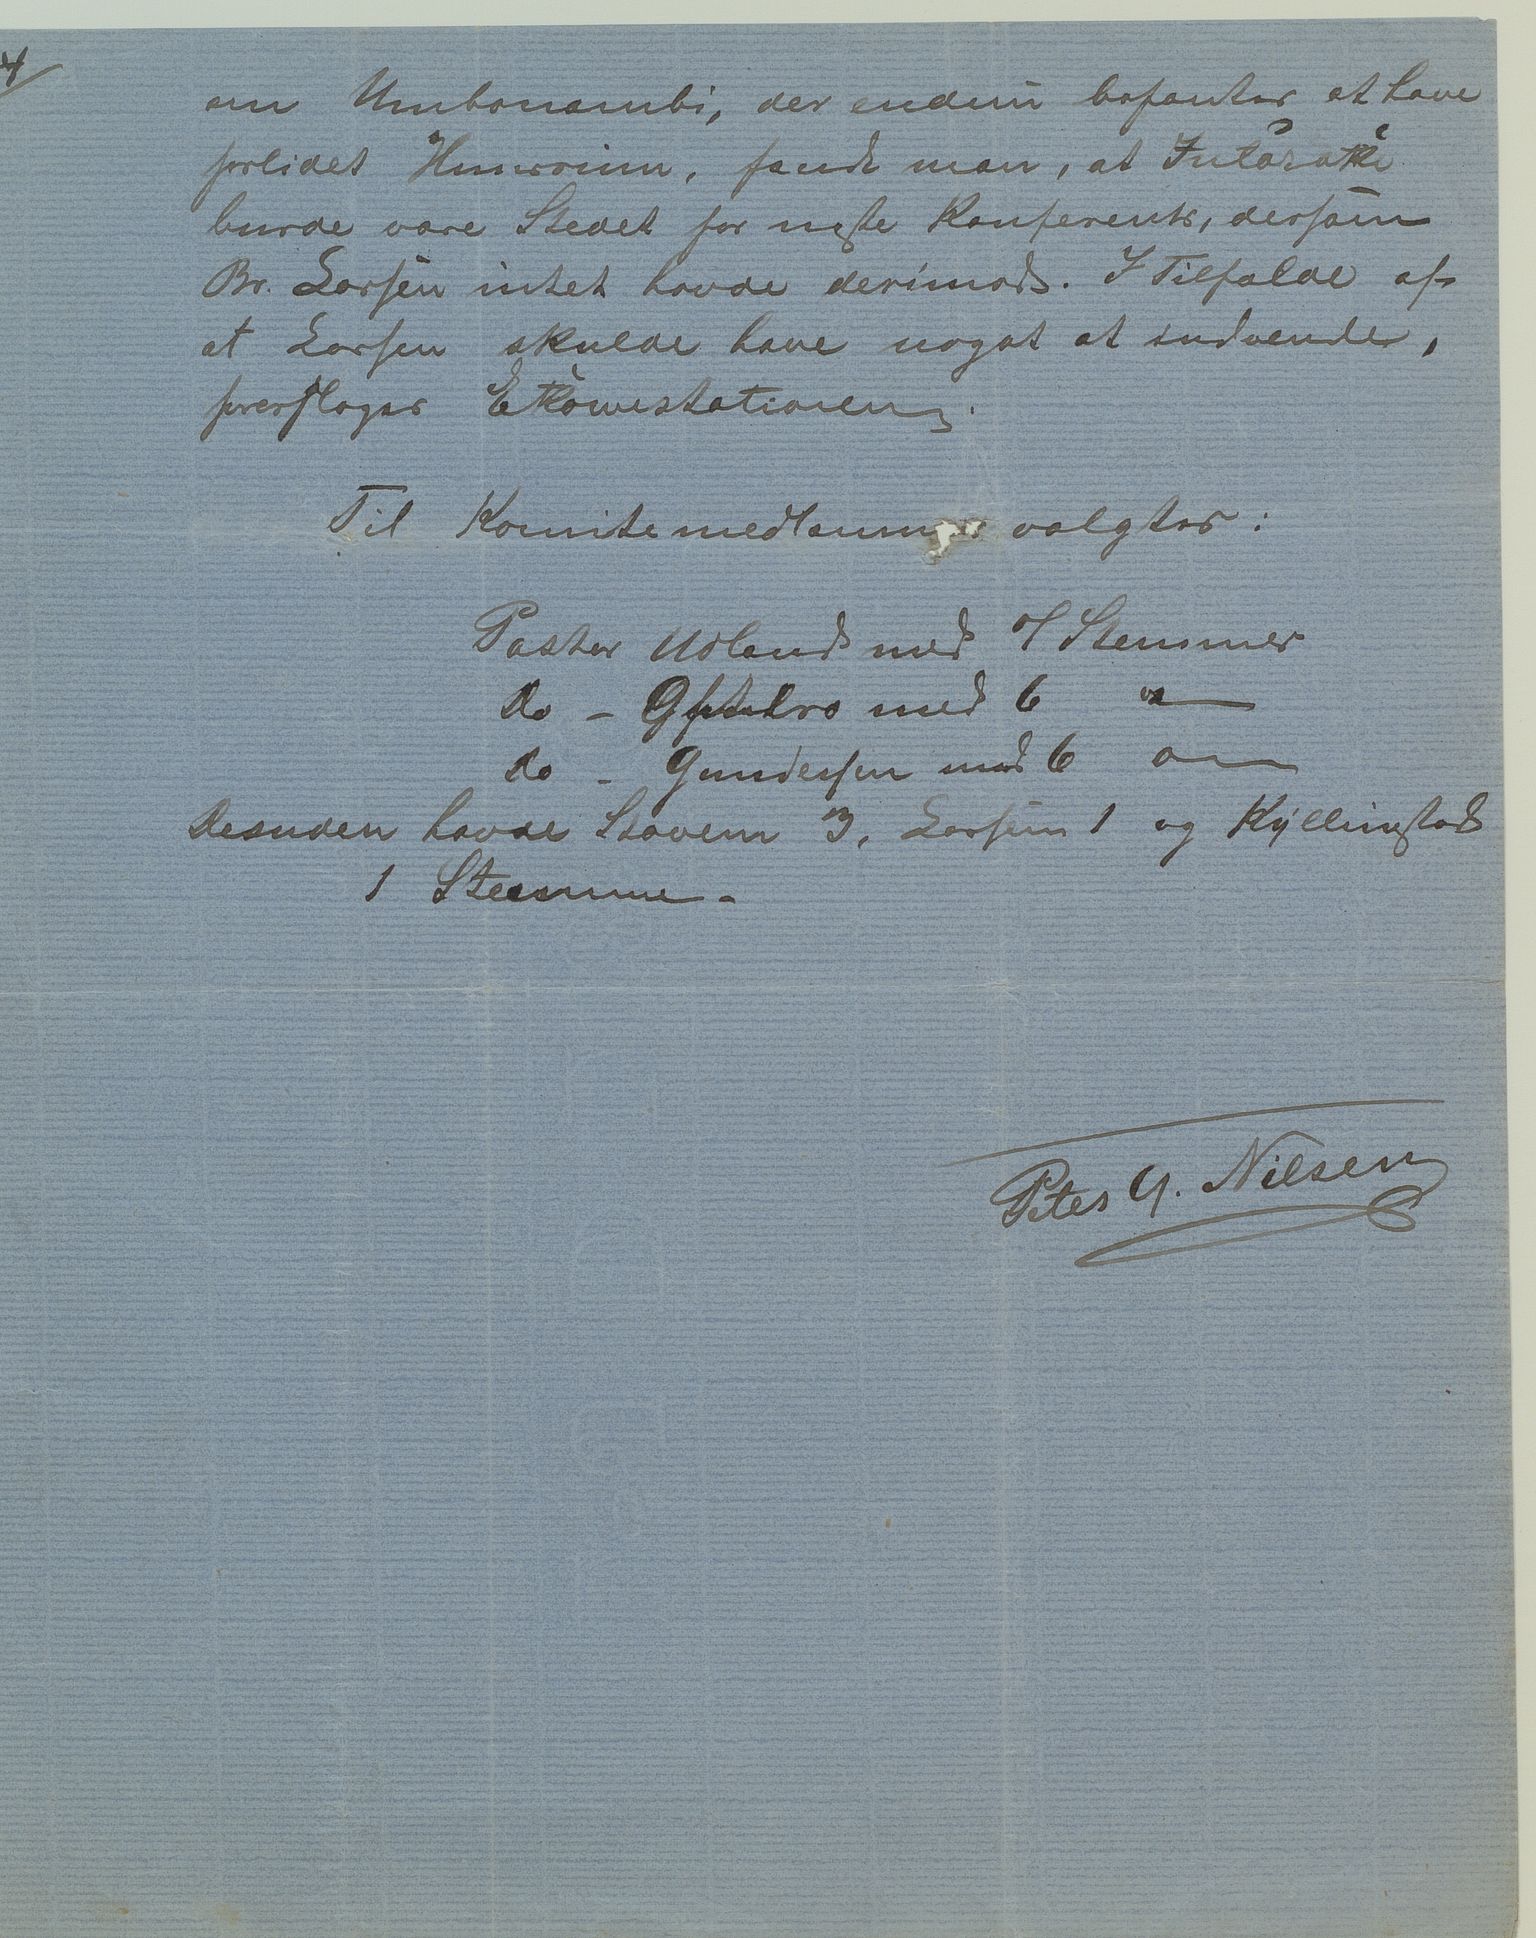 4/
om Umbonambi, der endnu befantes at have
forlidet Hmrrinm, fandt man, at Inlazatke
burde være Stedet for neste Konferents, dersom
Br. Larsen intet havde derimod. I Tilfælde af
at Larsen skulde have noget at indvende,
foresloges Ekowestationen.
Til Komitemedlemmer valgtes:
Pastor Udland med 7 Stemmer
do - Gjstdro med 6 "—
do - Gundersen med 6 "—
Desuden havde Stavem 3, Larsen 1 og Kyllingstad
1 Stemme.-
Peter A. Nilsen